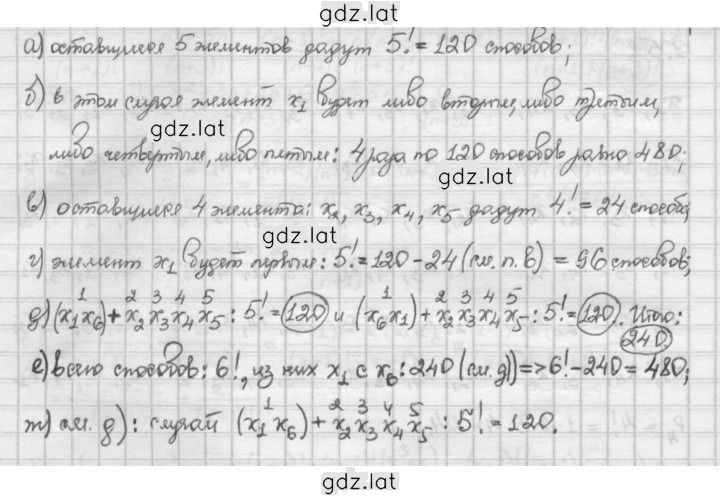 gdz.lat
а) оставшиеся 5 элементов дадут 5! = 120 способов;
б) в этом случае элемент x₁ будет либо вторым, либо третьим,
gdz.lat
либо четвертым, либо пятым: 4 раза по 120 способов равно 480;
gdz.lat
в) оставшиеся 4 элемента: x₂, x₃, x₄, x₅ дадут 4! = 24 способа;
gdz.lat
г) элемент x₁ будет первым: 5! = 120 - 24 (см. п. в) = 96 способов;
1 2 3 4 5 1 2 3 4 5
д) (x₁x₆) + x₂x₃x₄x₅ : 5! = 120 и (x₆x₁) + x₂x₃x₄x₅ : 5! = 120. Итого:
240.
е) всего способов: 6!, из них x₁ с x₆: 240 (см. д)) => 6! - 240 = 480;
1 2 3 4 5
ж) см. д): случай (x₁x₆) + x₂x₃x₄x₅ : 5! = 120.
gdz.lat